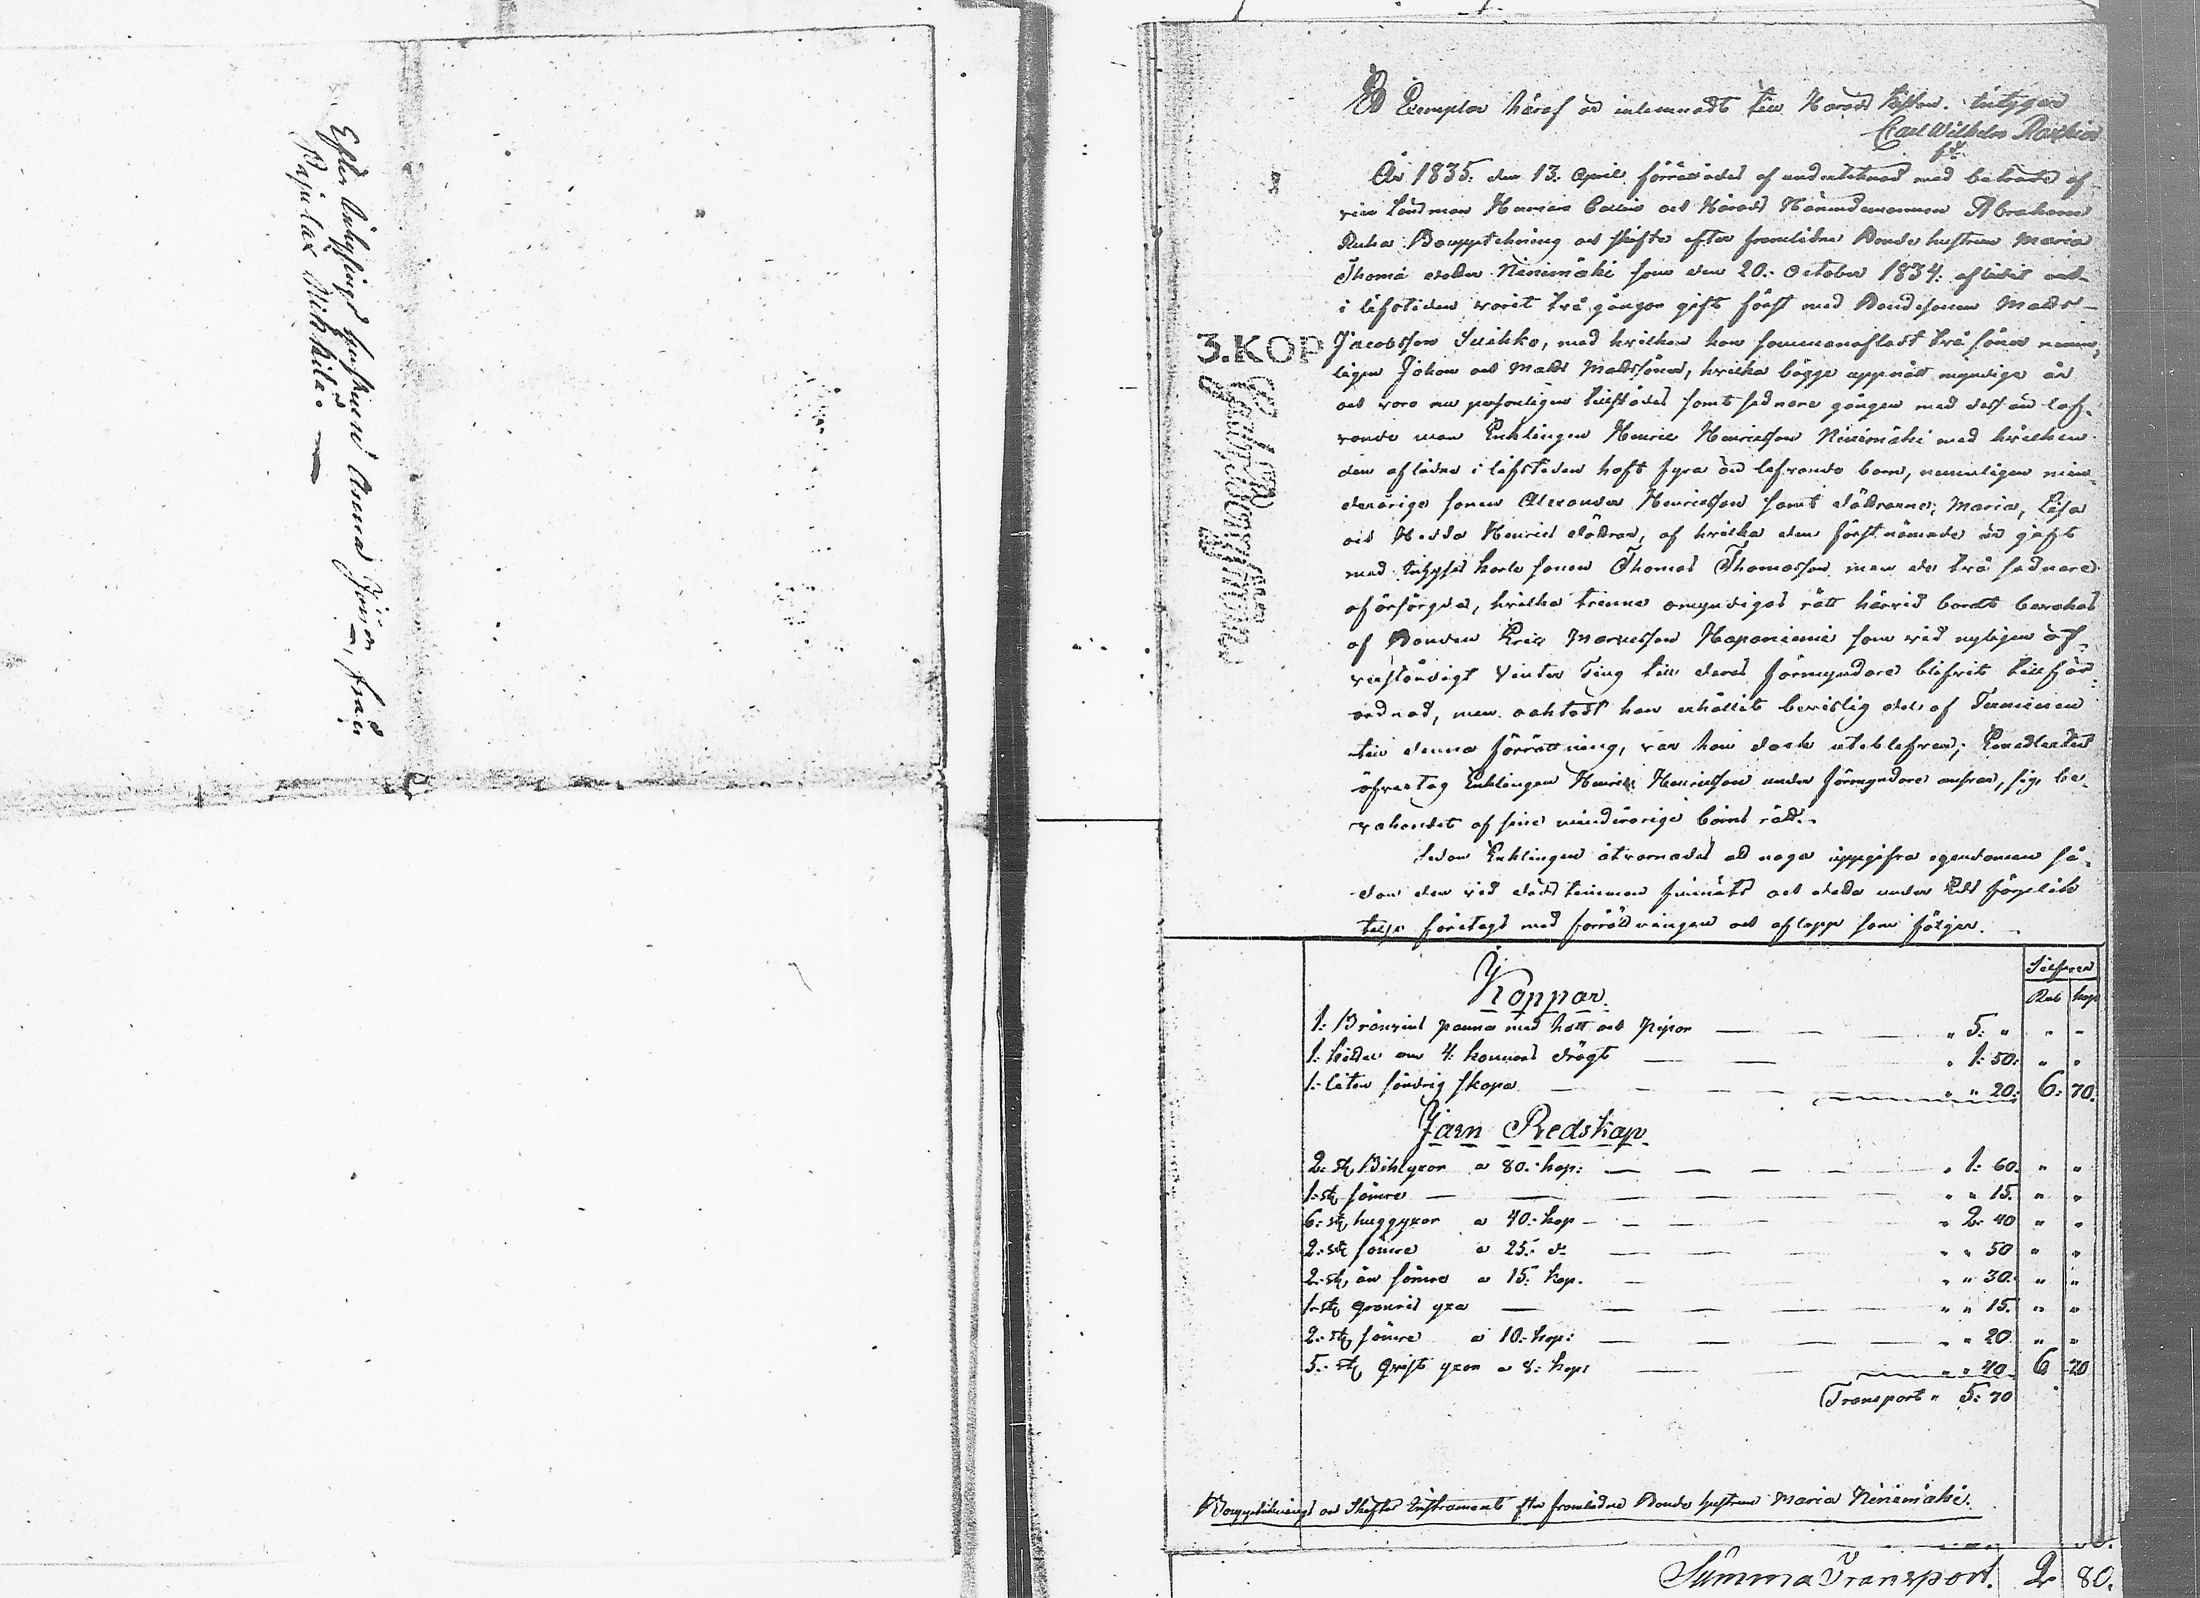 Efter Inhysings hustrun Anna Jönsa, från
Pajulax Mikkila.
Ett Exemplar häraf är inlemnadt till Härads Kistan. intygar
Carl Wilhelm
År 1835. den 13. April förrättades af undertecknad med biträde af
Länsman Herman och Härads Nämndemannen Abraham
Ruha Bouppteckning och skifte efter framlidna Bonde hustrun Maria
Thomæ dotter Niniemäki som den 20. October 1834. aflidit och
i lifstiden varit två gånger gift först med Bondesonen Matts
3.KOP
Jacobsson Suikko, med hvilken hon sammanaflat två söner nemm,
ligen Johan och Matts Mattssöner, hvilka bägge uppnått myndige år
och voro nu personligen tillstädes samt sednare gången med dess än lef,
vande man Enklingen Henric Henricsson Niniemäki med hvilken
den aflidna i lifstiden haft fyra än lefvande barn, nemmligen min
derårige sonen Alexander Henricsson samt döttrarne, Maria, Lisa
och Hedda Henrics döttrar, af hvilka den förstnämnde är gift
med Inhyses karls sonen Thomas Thomasson men de två sednare
oförsörgda, hvilka trenne omyndigas rätt härvid bordt bevakas
af Bonden Eric Marcusson Haponiemi som vid nyligen öf,
verståndigt Vinter Ting till deras förmyndare blifvit tillför
ordnad, men oaktadt han erhållit bevislig del af Terminen
till denna förrättning, var han dock utebleven; Emedlertid
öfvertog Enklingen Henric Henricsson under förmyndare ansvar, sig be,
vakandet af sine minderårige barns rätt.
Sedan Enklingen åtvarnades att noga uppgifva egendomen så,
dan den vid döds timmen funnits och detta under Eds förplik
telse företogs med förrättningen och aflopp som följer.
Silfver
Koppar.
Rub kop
1: Bränvins panna med hatt och pipor " 5: " " "
1: kittel om 4: kannors drägt " 1: 50: " "
1: liten söndrig skopa " " 20: 6: 70:
Järn Redskap.
2: st Bihlyxor a 80: kop: " 1: 60. " "
1: st sämre " " 15. " "
6: st huggyxor a 40: kop " 2: 40 " "
2: st sämre a 25: d: " " 50 " "
2: st, än sämre a 15: kop. " " 30. " "
1: st yxa " " 15. " "
2: st sämre a 10: kop: " " 20 " "
5: st yxor a 8: kop: " " 40 6 20
Transport " 5: 70
Bouppteknings och Skiftes Instrument efter framlidne Bonde hustrun Maria Niniemäki.
Summa Transport. 2 80.